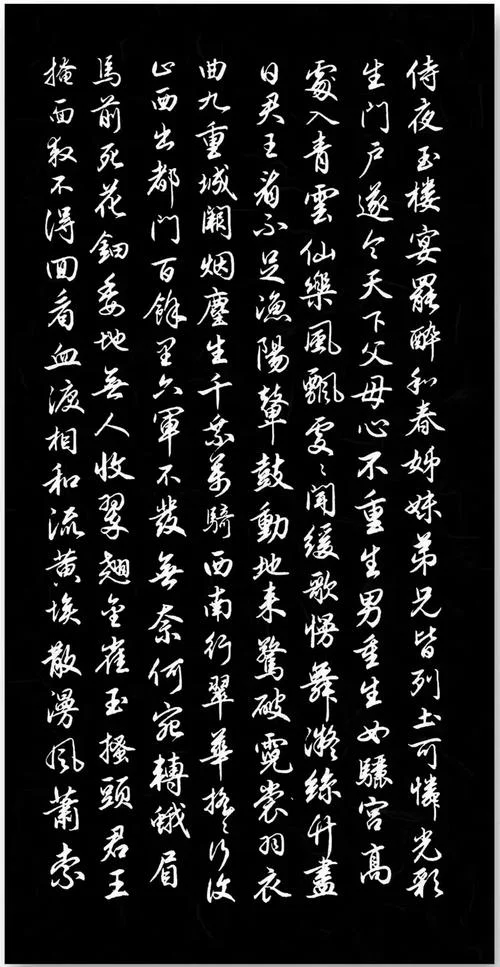 侍夜玉楼宴罷醉和春姊妹弟兄皆列土可憐光彩
生门户遂令天下父母心不重生男重生女驪宮髙
處入青雲仙樂風飄處〻聞緩歌慢舞凝絲竹盡
日君王看不足漁陽鼙鼓動地来驚破霓裳羽衣
曲九重城闕烟塵生千乘萬騎西南行翠華搖〻行復
止西出都門百餘里六軍不發無奈何宛轉蛾眉
馬前死花鈿委地無人收翠翹金雀玉搔頭君王
掩面救不得回看血淚相和流黄埃散漫風蕭索